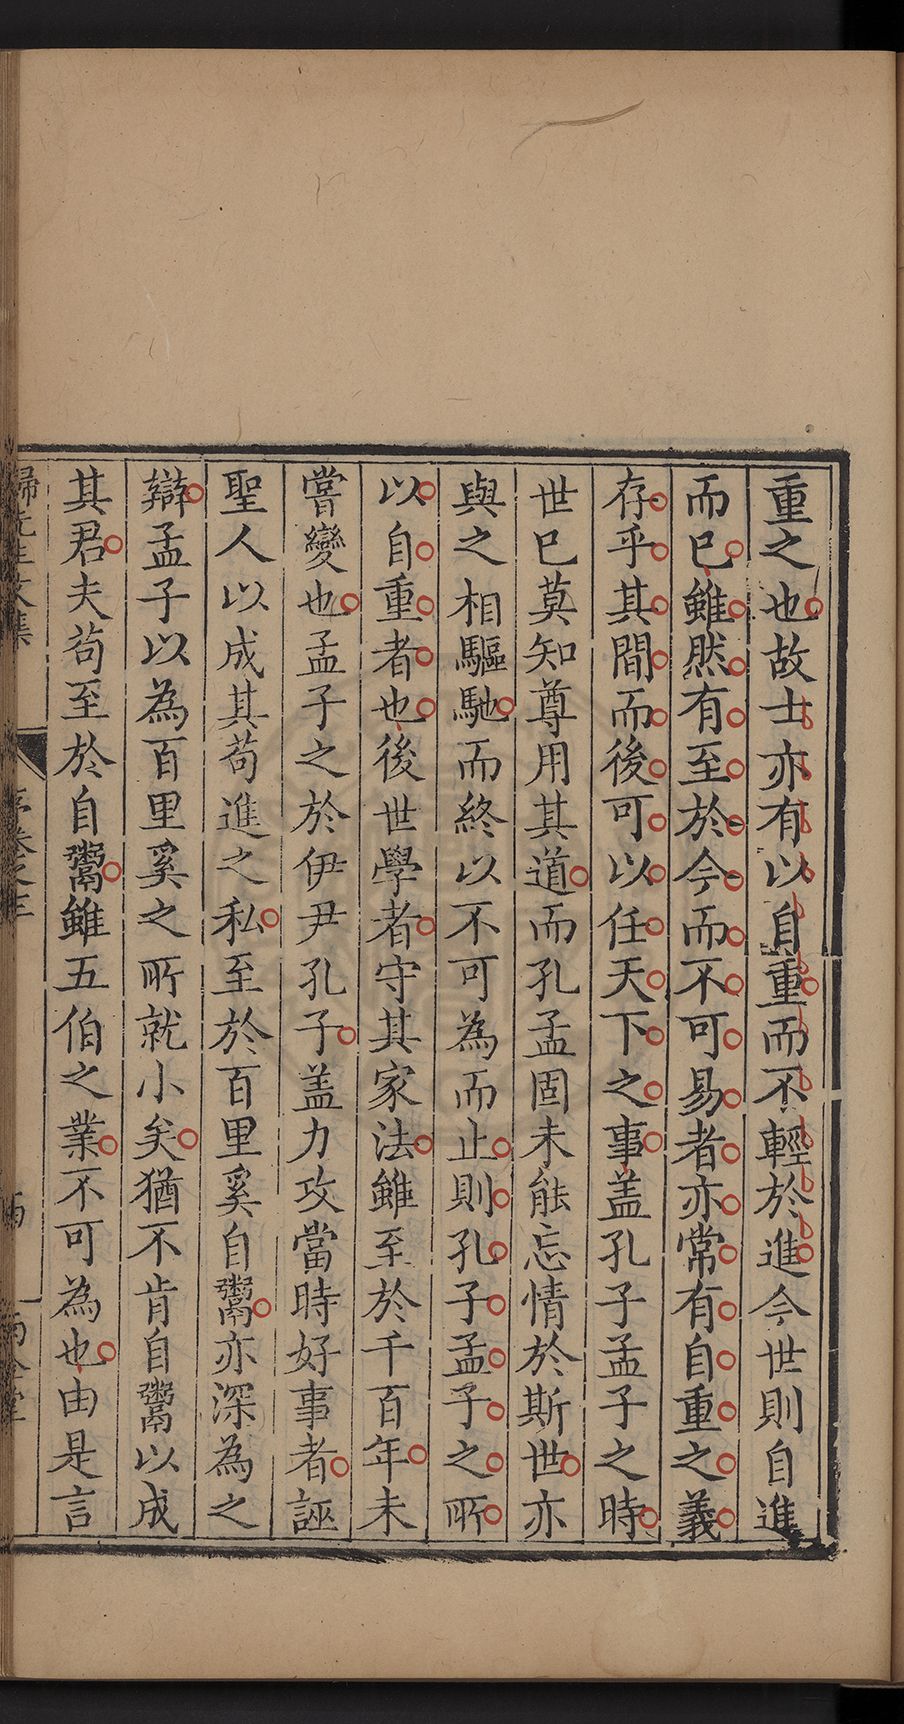 重之也故士亦有以自重而不輕於進今世則自進
而已雖然有至於今而不可易者亦常有自重之義
存乎其間而後可以任天下之事蓋孔子孟子之時
世已莫知尊用其道而孔孟固未能忘情於斯世亦
與之相驅馳而終以不可為而止則孔子孟子之所
以自重者也後世學者守其家法雖至於千百年未
嘗變也孟子之於伊尹孔子盖力攻當時好事者誣
聖人以成其苟進之私至於百里奚自鬻亦深為之
辯孟子以為百里奚之所就小矣猶不肯自鬻以成
其君夫苟至於自鬻雖五伯之業不可為也由是言